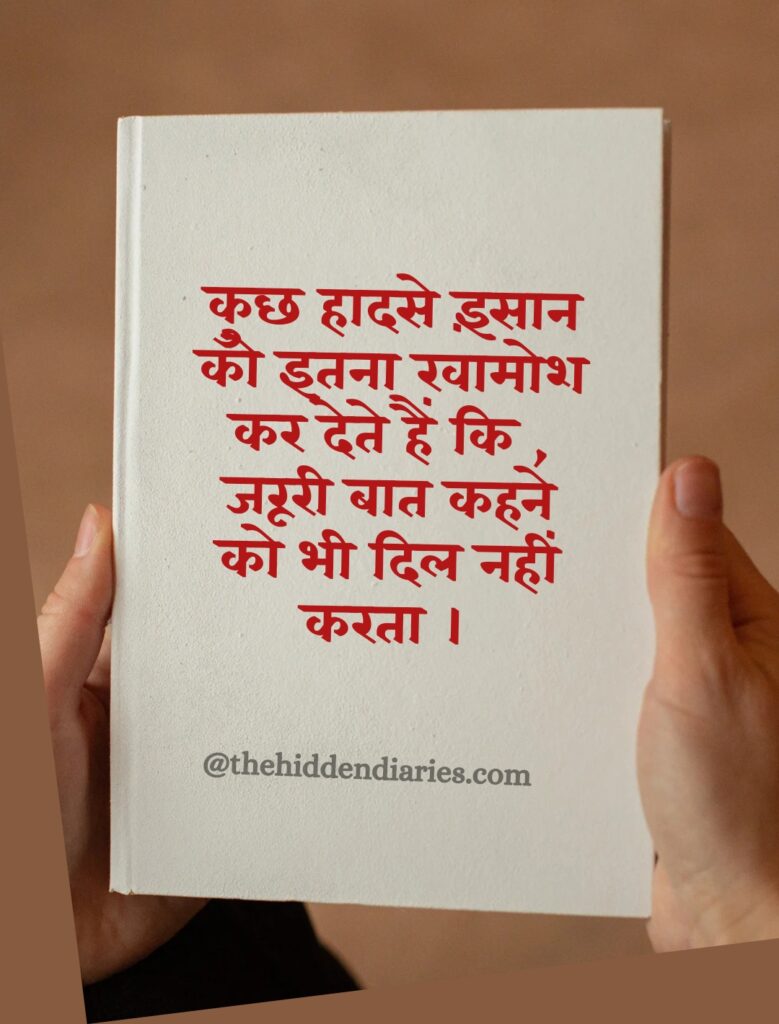 कुछ हादसे इंसान
को इतना खामोश
कर देते हैं कि ,
जरूरी बात कहने
को भी दिल नहीं
करता ।
@thehiddendiaries.com